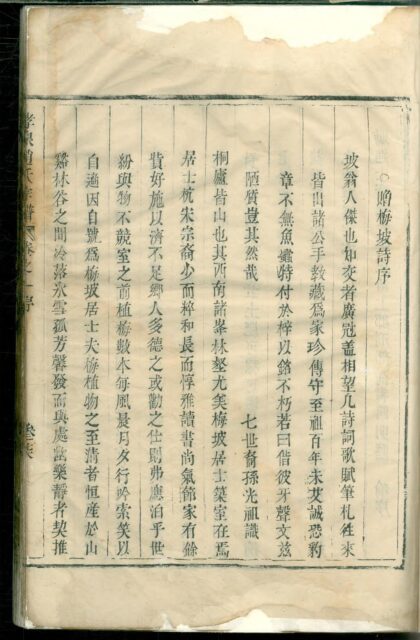 贈梅坡詩序
坡翁人傑也知交者廣冠盖相望凡詩詞歌賦筆札徃來
皆出諸公手教藏爲家珍傳守至祖百年未艾誠恐豹
章不無魚蠧特付於梓以銘不朽若曰借彼牙聲文兹
陋質豈其然哉
七世裔孫光祖識
桐廬皆山也其西南諸峯林壑尤美梅坡居士築室在焉
居士杭朱宗裔少而粹和長而惇雅讀書尚氣節家有餘
貲好施以濟不足鄉人多德之或勸之仕則弗應泊乎世
紛與物不競室之前植梅數本每風晨月夕行吟索笑以
自適因自號爲梅坡居士夫梅植物之至清者恒産於山
谿林谷之間冷落氷雪孤芳馨發而與處幽樂靜者契推
氏 譜 卷之一 序